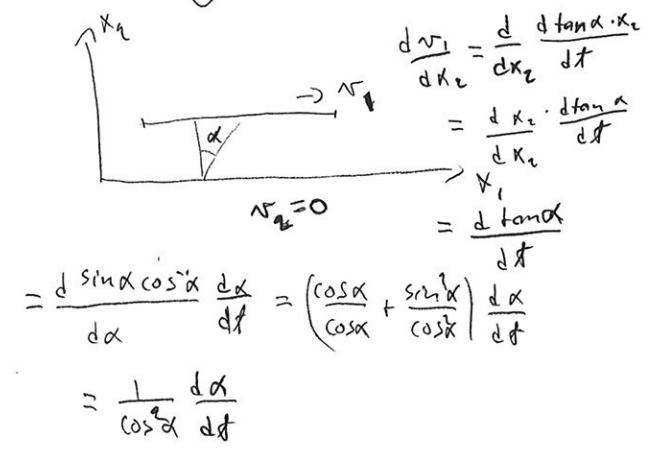 x₂
dv₁/dx₂ = d/dx₂ d tanα·x₂/dt
→ v₁
α
= d x₂/d x₂ · d tan α/dt
x₁
v₂=0
= d tanα/dt
= d sinα cos⁻¹α/dα dα/dt = (cosα/cosα + sin²α/cos²α) dα/dt
= 1/cos²α dα/dt